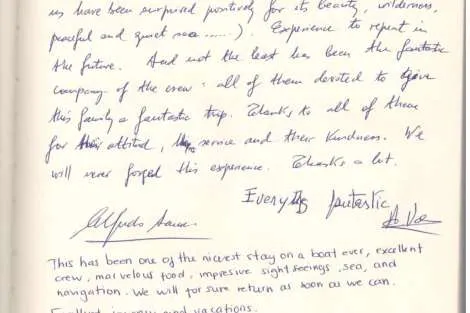 us have been surprised positively for its beauty, wilderness,
peaceful and quiet .....). Experience to repeat in
the future. And not the least has been the fantastic
company of the crew - all of them devoted to give
this family a fantastic trip. Thanks to all of them
for their attitud, service and their kindness. We
will never forged this experience. Thanks a lot.
Everything fantastic
Alfredo
This has been one of the nicest stay on a boat ever, excellent
crew, marvelous food, impresive sightseeings, sea, and
navigation. We will for sure return as soon as we can.
and vacations.